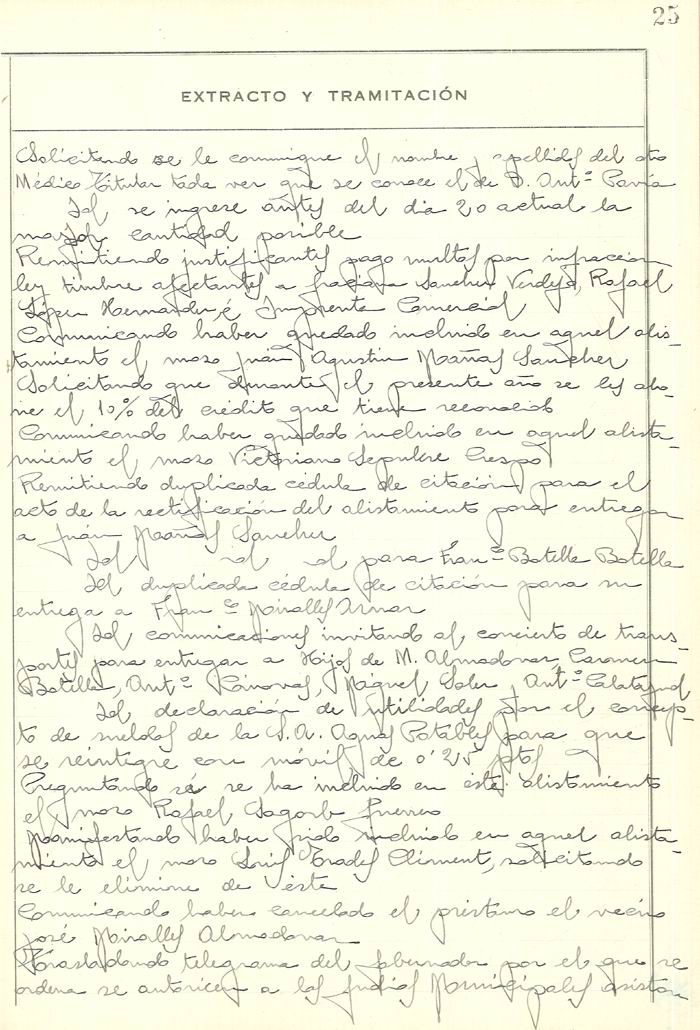 25
EXTRACTO Y TRAMITACIÓN
Solicitando se le comunique el nombre y apellidos del otro
Médico Titular toda vez que se conoce el de D. Antº Pavía
Id. se ingrese antes del dia 20 actual la
mayor cantidad posible
Remitiendo justificantes pago multas por infracción
ley timbre afectantes a Sanchez Verdejo, Rafael
López Hernandez é Imprenta Comercial
Comunicando haber quedado incluido en aquel alis-
tamiento el mozo Juán Agustin Mañas Sanchez
Solicitando que durante el presente año se les abo-
ne el 10% del crédito que tiene reconocido
Comunicando haber quedado incluido en aquel alista-
miento el mozo Victoriano Sepulcre Crespo
Remitiendo duplicada cédula de citación para el
acto de la rectificación del alistamiento para entregar
a Juán Mañas Sanchez
Id. id. id. para Franº Botella Botella
Id. duplicada cédula de citación para su
entrega a Franº Miralles Aznar
Id. comunicaciones invitando al concierto de trans-
portes para entregar a Hijos de M. Almodovar, Carmen
Botella, Antº Cánovas, Miguel Soler, Antº Calatayud
Id. declaración de utilidades por el concep-
to de sueldos de la S.A. Aguas Potables para que
se reintegre con móvil de 0'25 ptas
Preguntando si se ha incluido en este alistamiento
el mozo Rafael Sagorb Guerrero
Manifestando haber sido incluido en aquel alista-
miento el mozo Luis Prades Climent, solicitando
se le elimine de éste
Comunicando haber cancelado el préstamo el vecino
José Miralles Almodovar
Trasladando telegrama del Gobernador por el que se
ordena se autoricen a los Judios Municipales asistan